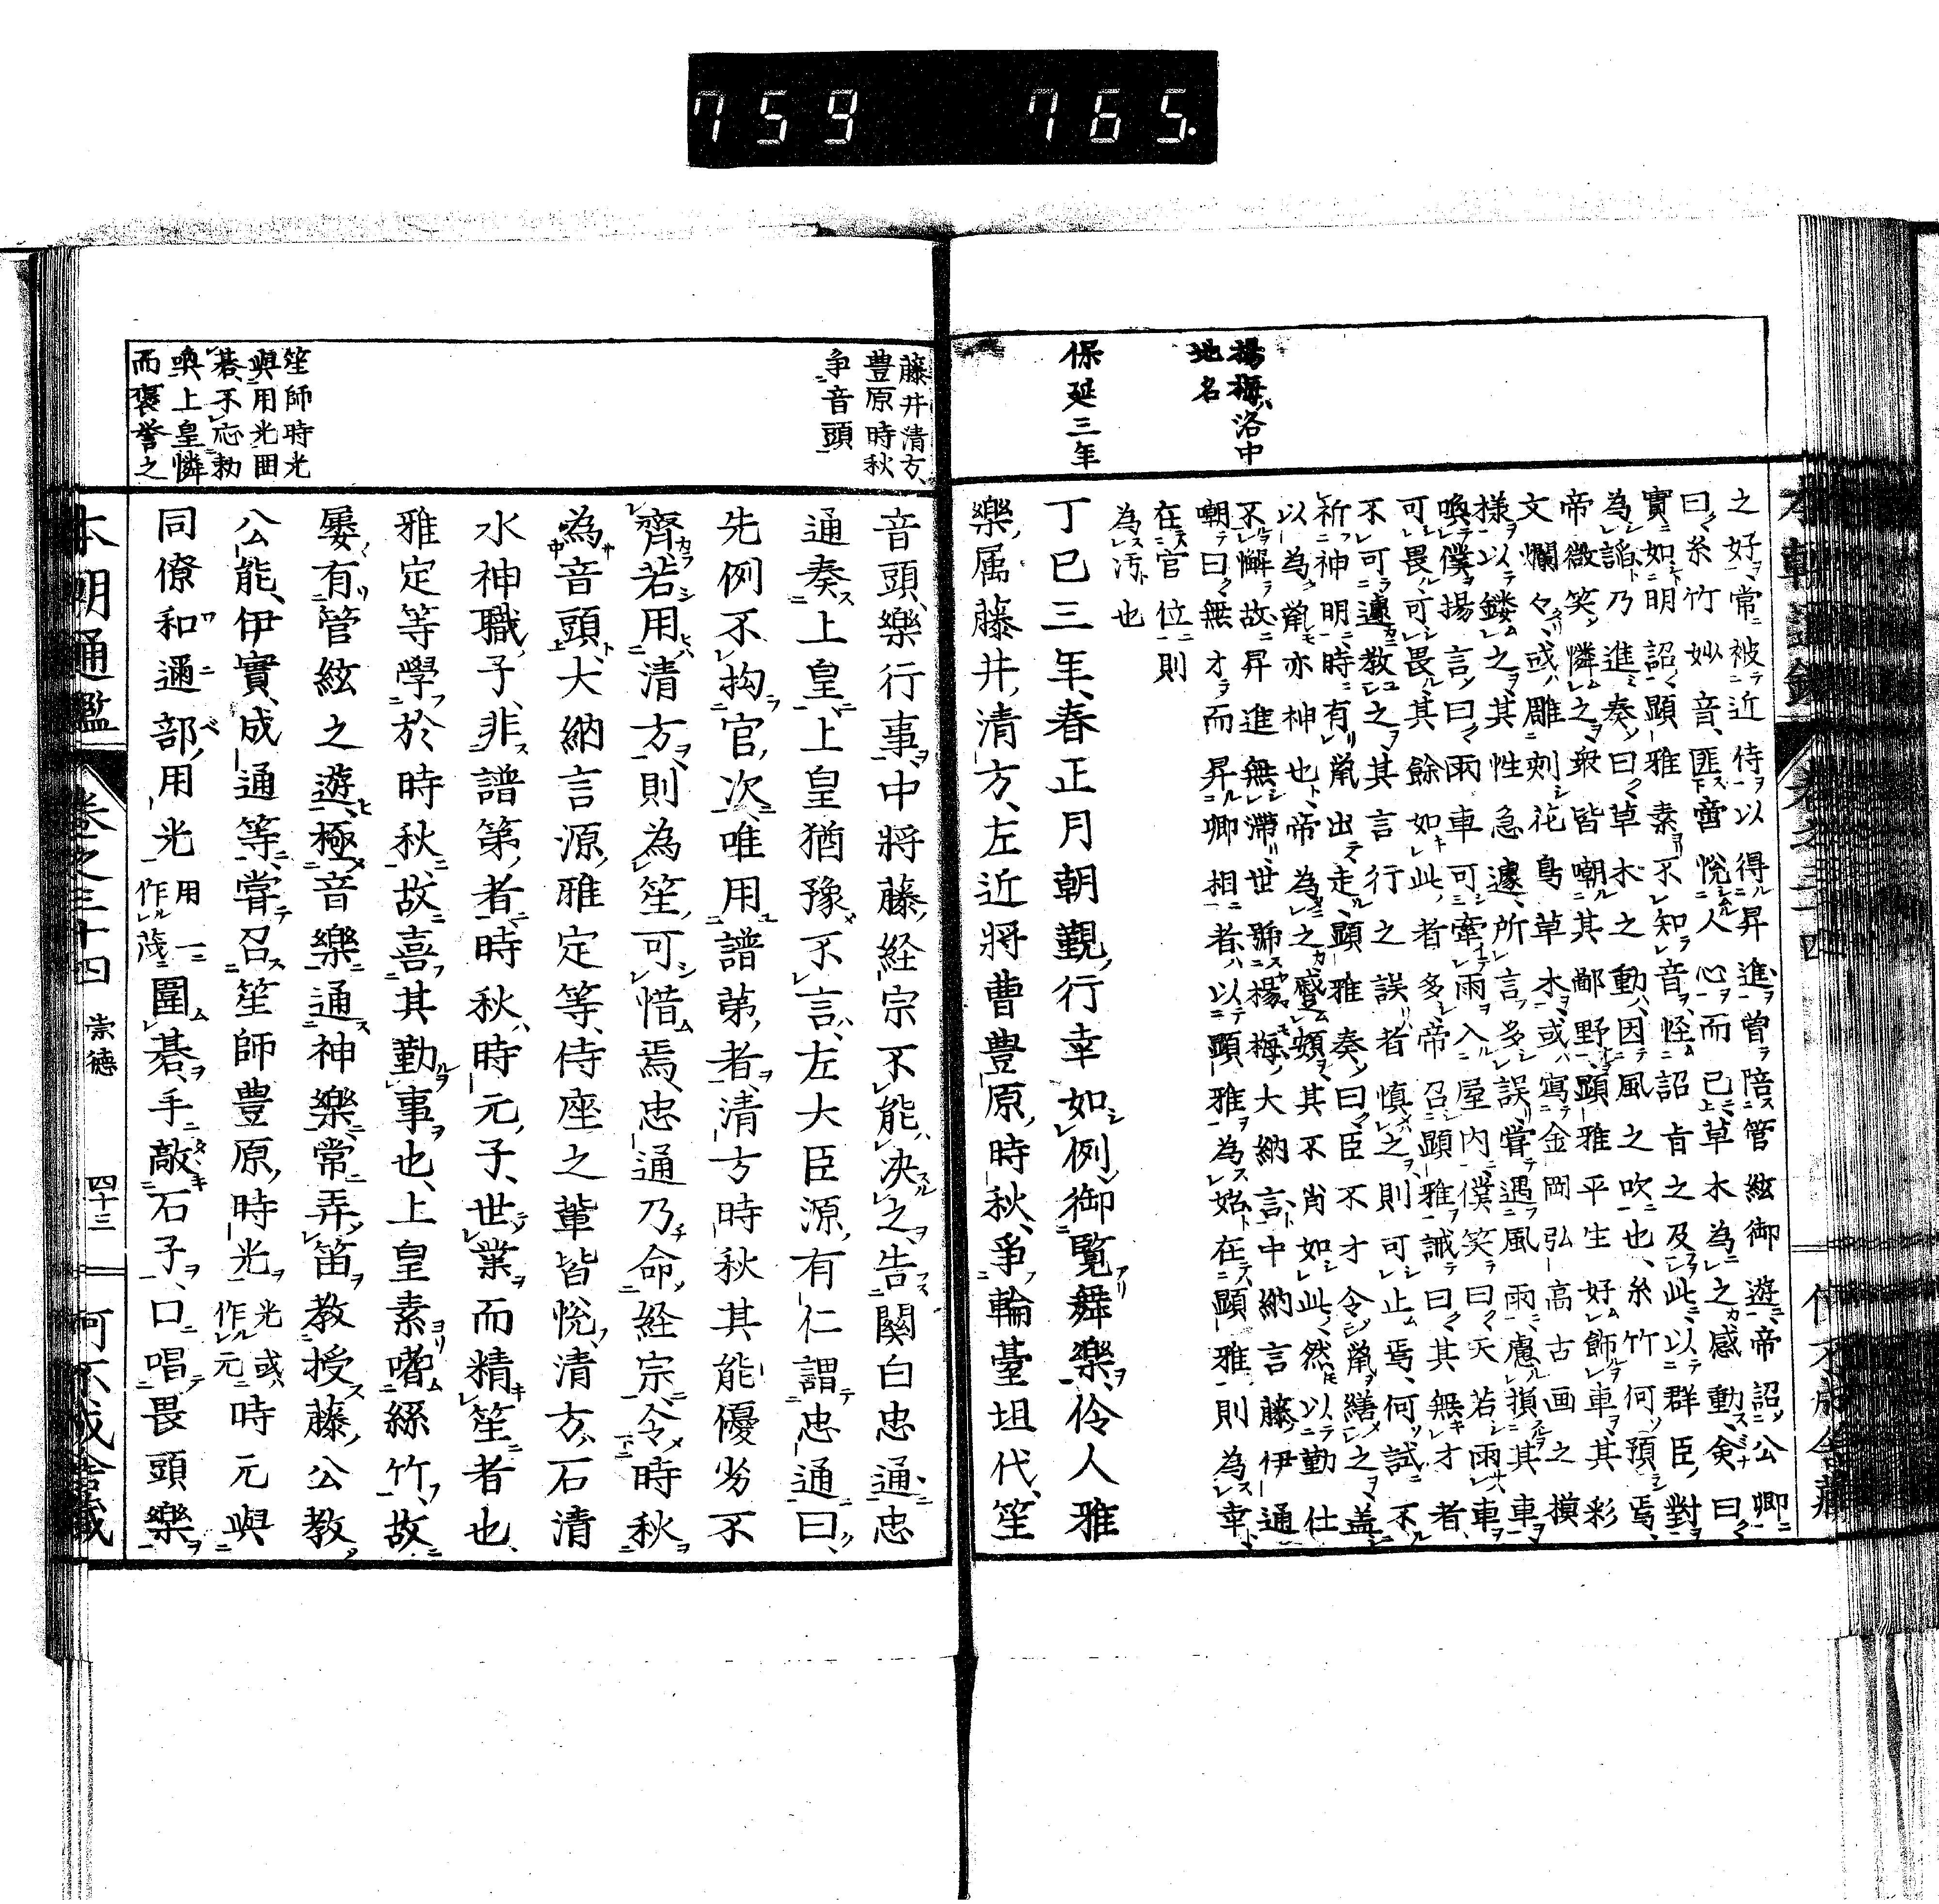 759 765.
揚梅、洛中
地名
保延三年
之好、常被近侍、以得昇進、曽陪管絃御遊、帝詔公卿
曰、糸竹妙音、匪啻悅人心、而已、草木為之感動、僉曰、
實如明詔、顕雅素不知音、怪詔旨之及此、以群臣對
為謟、乃進奏曰、草木之動、因風之吹也、糸竹何預焉、
帝微笑、憐之、衆皆嘲其鄙野、顕雅平生好飾車、其彩
文爛々、或雕刻花鳥草木、或寫金岡弘高古画之摸
様、以鏤之、其性急遽、所言多誤、嘗遇風雨、慮損其車、
喚僕揚言曰、雨車可牽雨入屋内、僕笑曰、天若雨車、
可畏可畏、其餘如此者多、帝召顕雅誡曰、其無才者、
不可遽教之、其言行之誤者、慎之則可止焉、何試不
祈神明、時有鼠出走、顕雅奏曰、臣不才、令鼠繕之、盖
以為鼠亦神也、帝為之盛頞、其不肖如此、然以勤仕
不懈、故昇進無滞、世號揚梅大納言、中納言藤伊通
嘲曰、無才而昇卿相者、以顕雅為始、在顕雅則為幸、
在官位則
為汚也
丁巳三年、春正月朝覲行幸如例、御覧舞樂、伶人雅
樂属藤井清方、左近將曹豊原時秋、爭輪臺坦代、笙
藤井清方、
豊原時秋
争音頭
音頭、樂行事中將藤経宗不能決之、告關白忠通、忠
通奏上皇、上皇猶豫不言、左大臣源有仁謂忠通曰、
先例不拘官次、唯用譜第者、清方時秋其能優劣不
齊、若用清方、則為笙可惜焉、忠通乃命経宗、令時秋
為音頭、大納言源雅定等、侍座之輩皆悅、清方、石清
水神職子、非譜第者、時秋、時元子、世業而精笙者也、
雅定等學於時秋、故喜其勤事也、上皇素嗜絲竹、故
屢有管絃之遊、極音樂、通神樂、常弄笛、教授藤公教、
公能、伊實、成通等、嘗召笙師豊原時光、光或作元時元與
同僚和邇部用光用一作茂圍碁、手敵石子、口唱畏頭樂、
笙師時光
與用光囲
碁、不応勅
喚、上皇憐
而褒誉之
本朝通鑑 卷之三十四 崇德 四十三